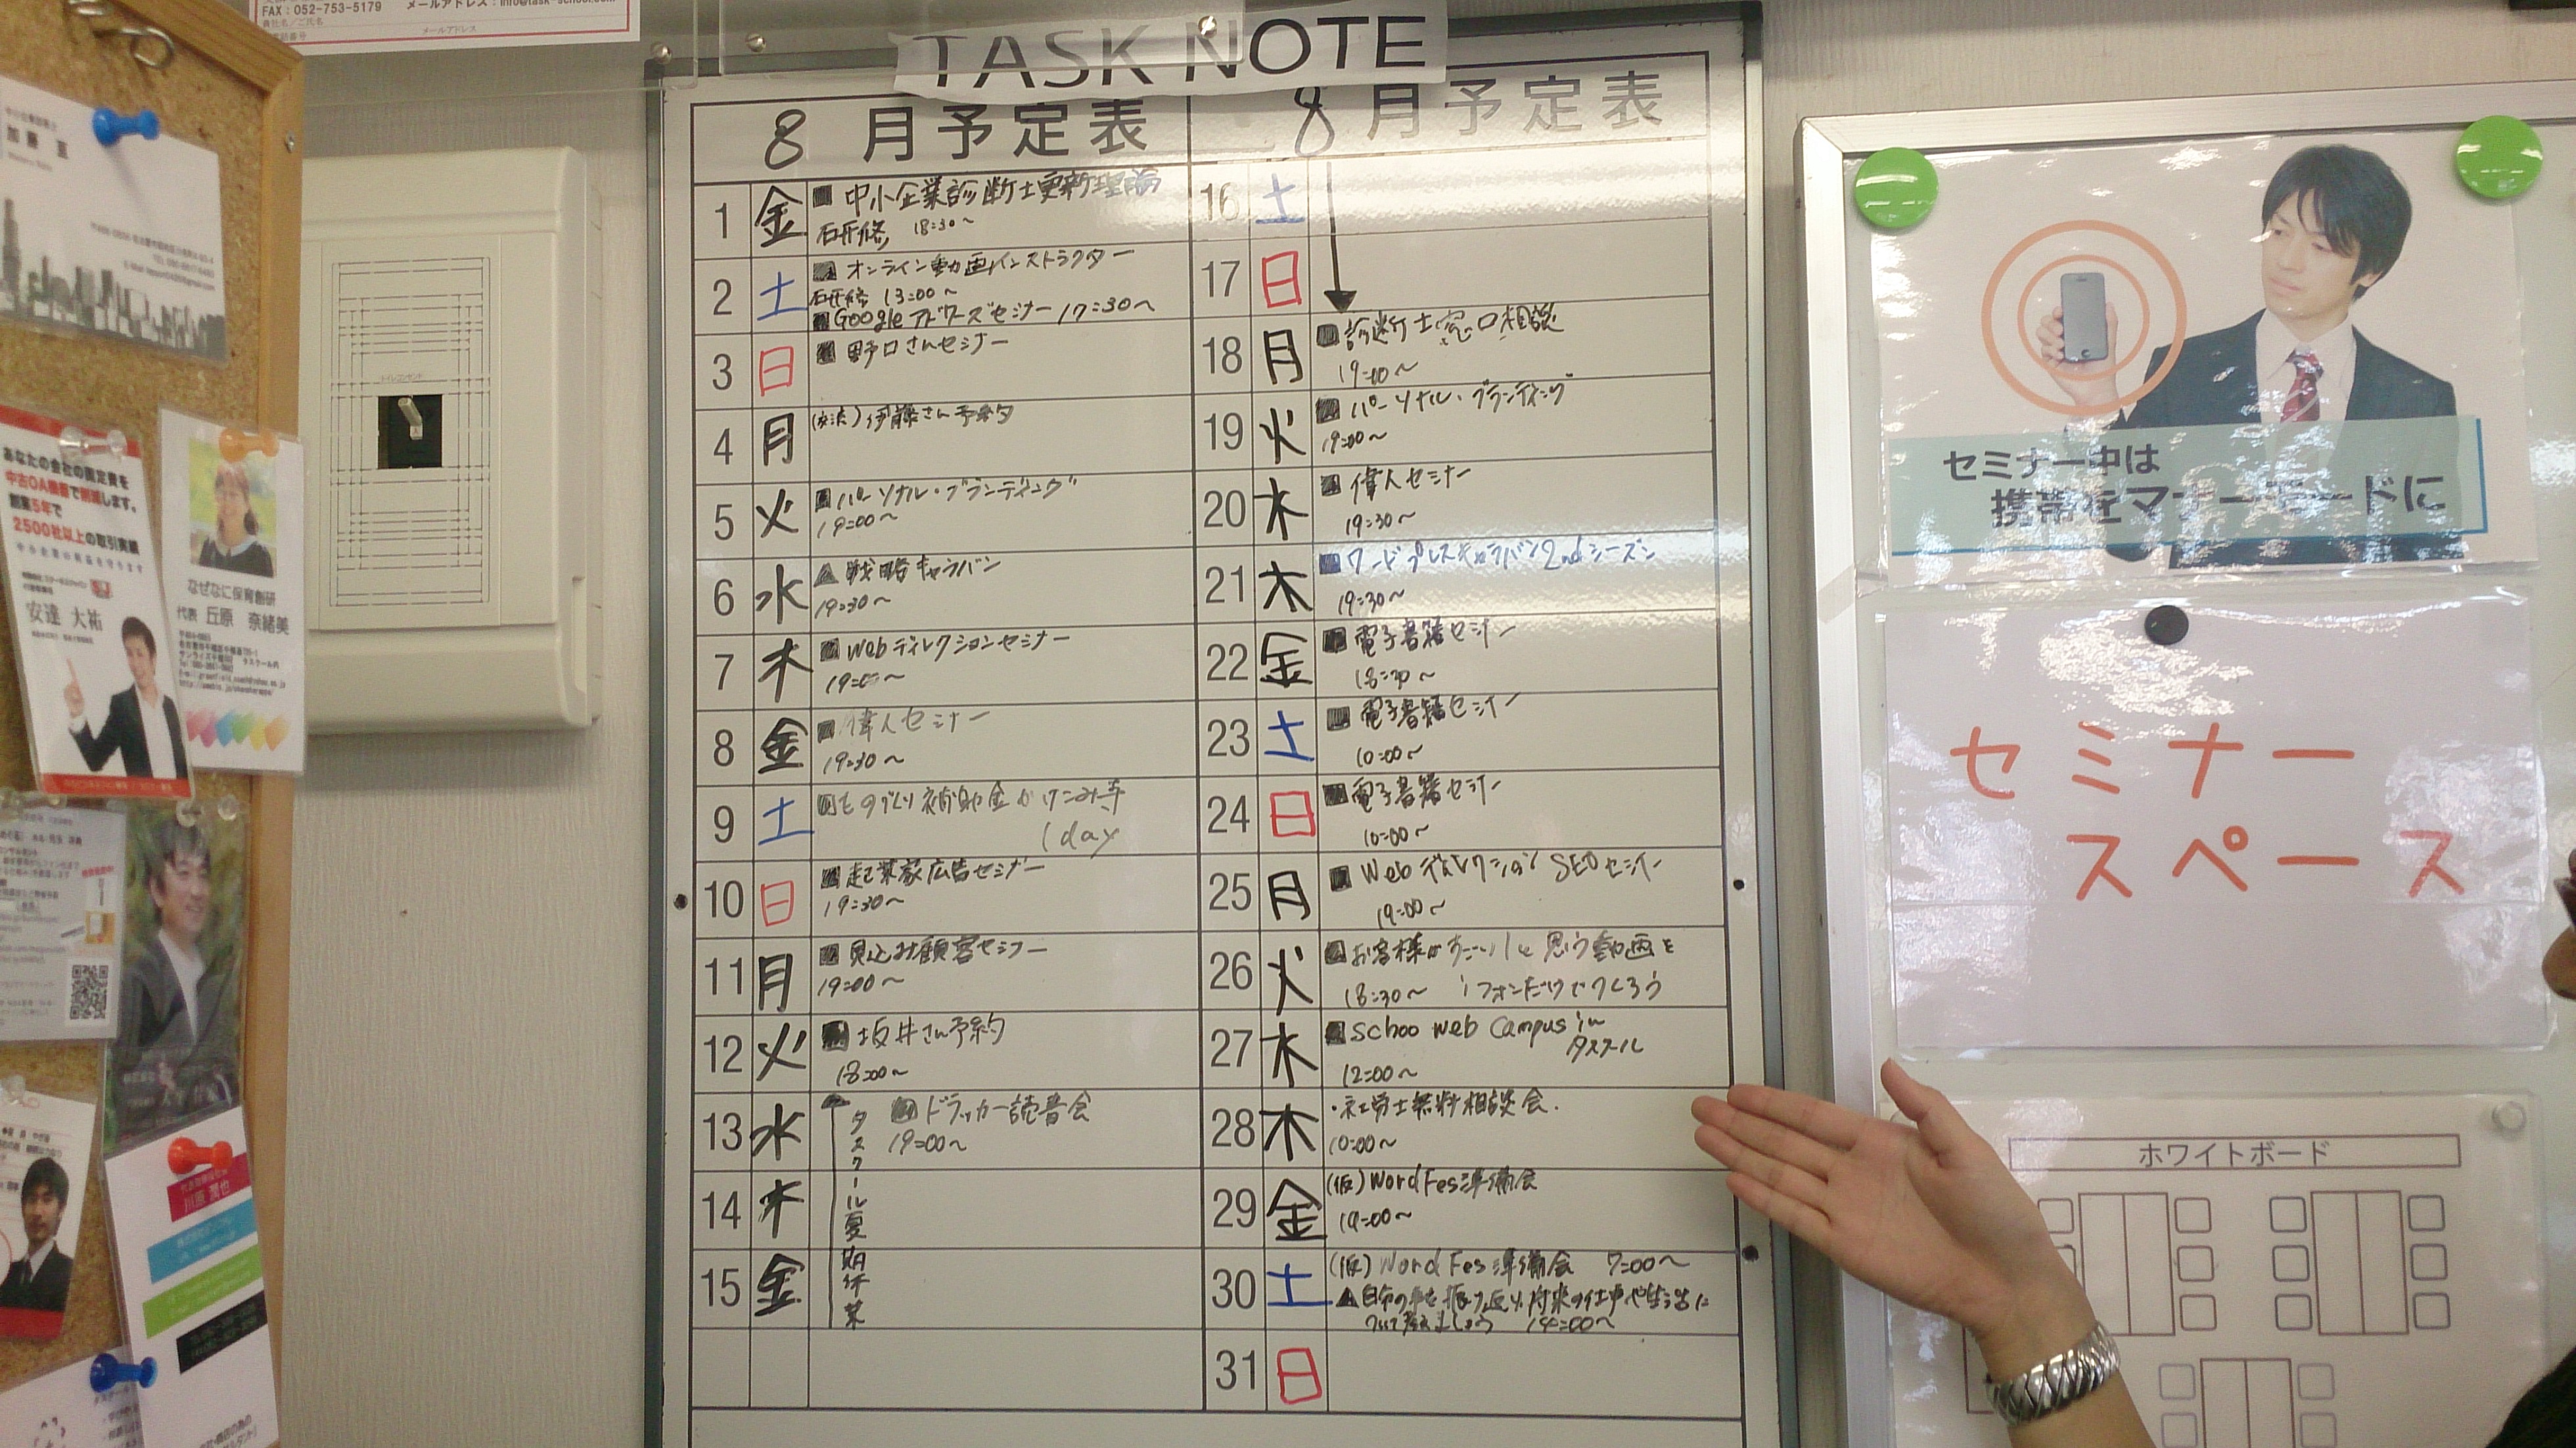 FAX：052-753-5179 メールアドレス：info@task-school.com
貴社名／ご氏名
電話番号 メールアドレス
TASK NOTE
8 月予定表
1 金 中小企業診断士更新理論
研修 18:30～
2 土 オンライン動画インストラクター
研修 13:00～
Google アドワーズセミナー 17:30～
3 日 野口さんセミナー
4 月 伊藤さん予約
5 火 パーソナル・ブランディング
19:00～
6 水 ▲ 戦略キャラバン
19:30～
7 木 Webディレクションセミナー
19:00～
8 金 偉人セミナー
19:30～
9 土 ものづくり補助金
1day
10 日 起業家広告セミナー
19:30～
11 月 見込み顧客セミナー
19:00～
12 火 坂井さん予約
18:00～
13 水 ドラッカー読書会
19:00～
14 木
15 金
タスクール夏期休業
8 月予定表
16 土
17 日
18 月 診断士窓口相談
19:00～
19 火 パーソナル・ブランディング
19:00～
20 水 偉人セミナー
19:30～
21 木 ワードプレスキャラバン2ndシーズン
19:30～
22 金 電子書籍セミナー
18:30～
23 土 電子書籍セミナー
10:00～
24 日 電子書籍セミナー
10:00～
25 月 Webディレクション SEOセミナー
19:00～
26 火 お客様がすごい！と思う動画を
18:30～ iフォンだけでつくろう
27 水 schoo web campus in
タスクール
12:00～
28 木 ・社労士無料相談会.
10:00～
29 金 (仮) WordFes準備会
19:00～
30 土 (仮) WordFes準備会 7:00～
▲自分の事を振り返り、将来の仕事や生活に
ついて考えましょう 14:00～
31 日
加藤
あなたの会社の固定費を
中古OA機器で削減します。
創業5年で
2500社以上の取引実績
安達 大祐
なぜなに保育創研
代表 丘原 奈緒美
川原 潤也
セミナー中は
携帯をマナーモードに
セミナー
スペース
ホワイトボード